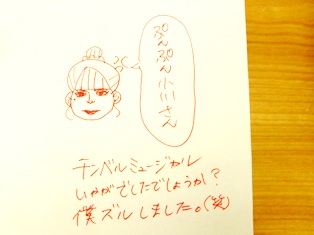 ぷんぷん小川さん
チンベルミュージカル
いかがでしたでしょうか?
僕ズルしました。(笑)